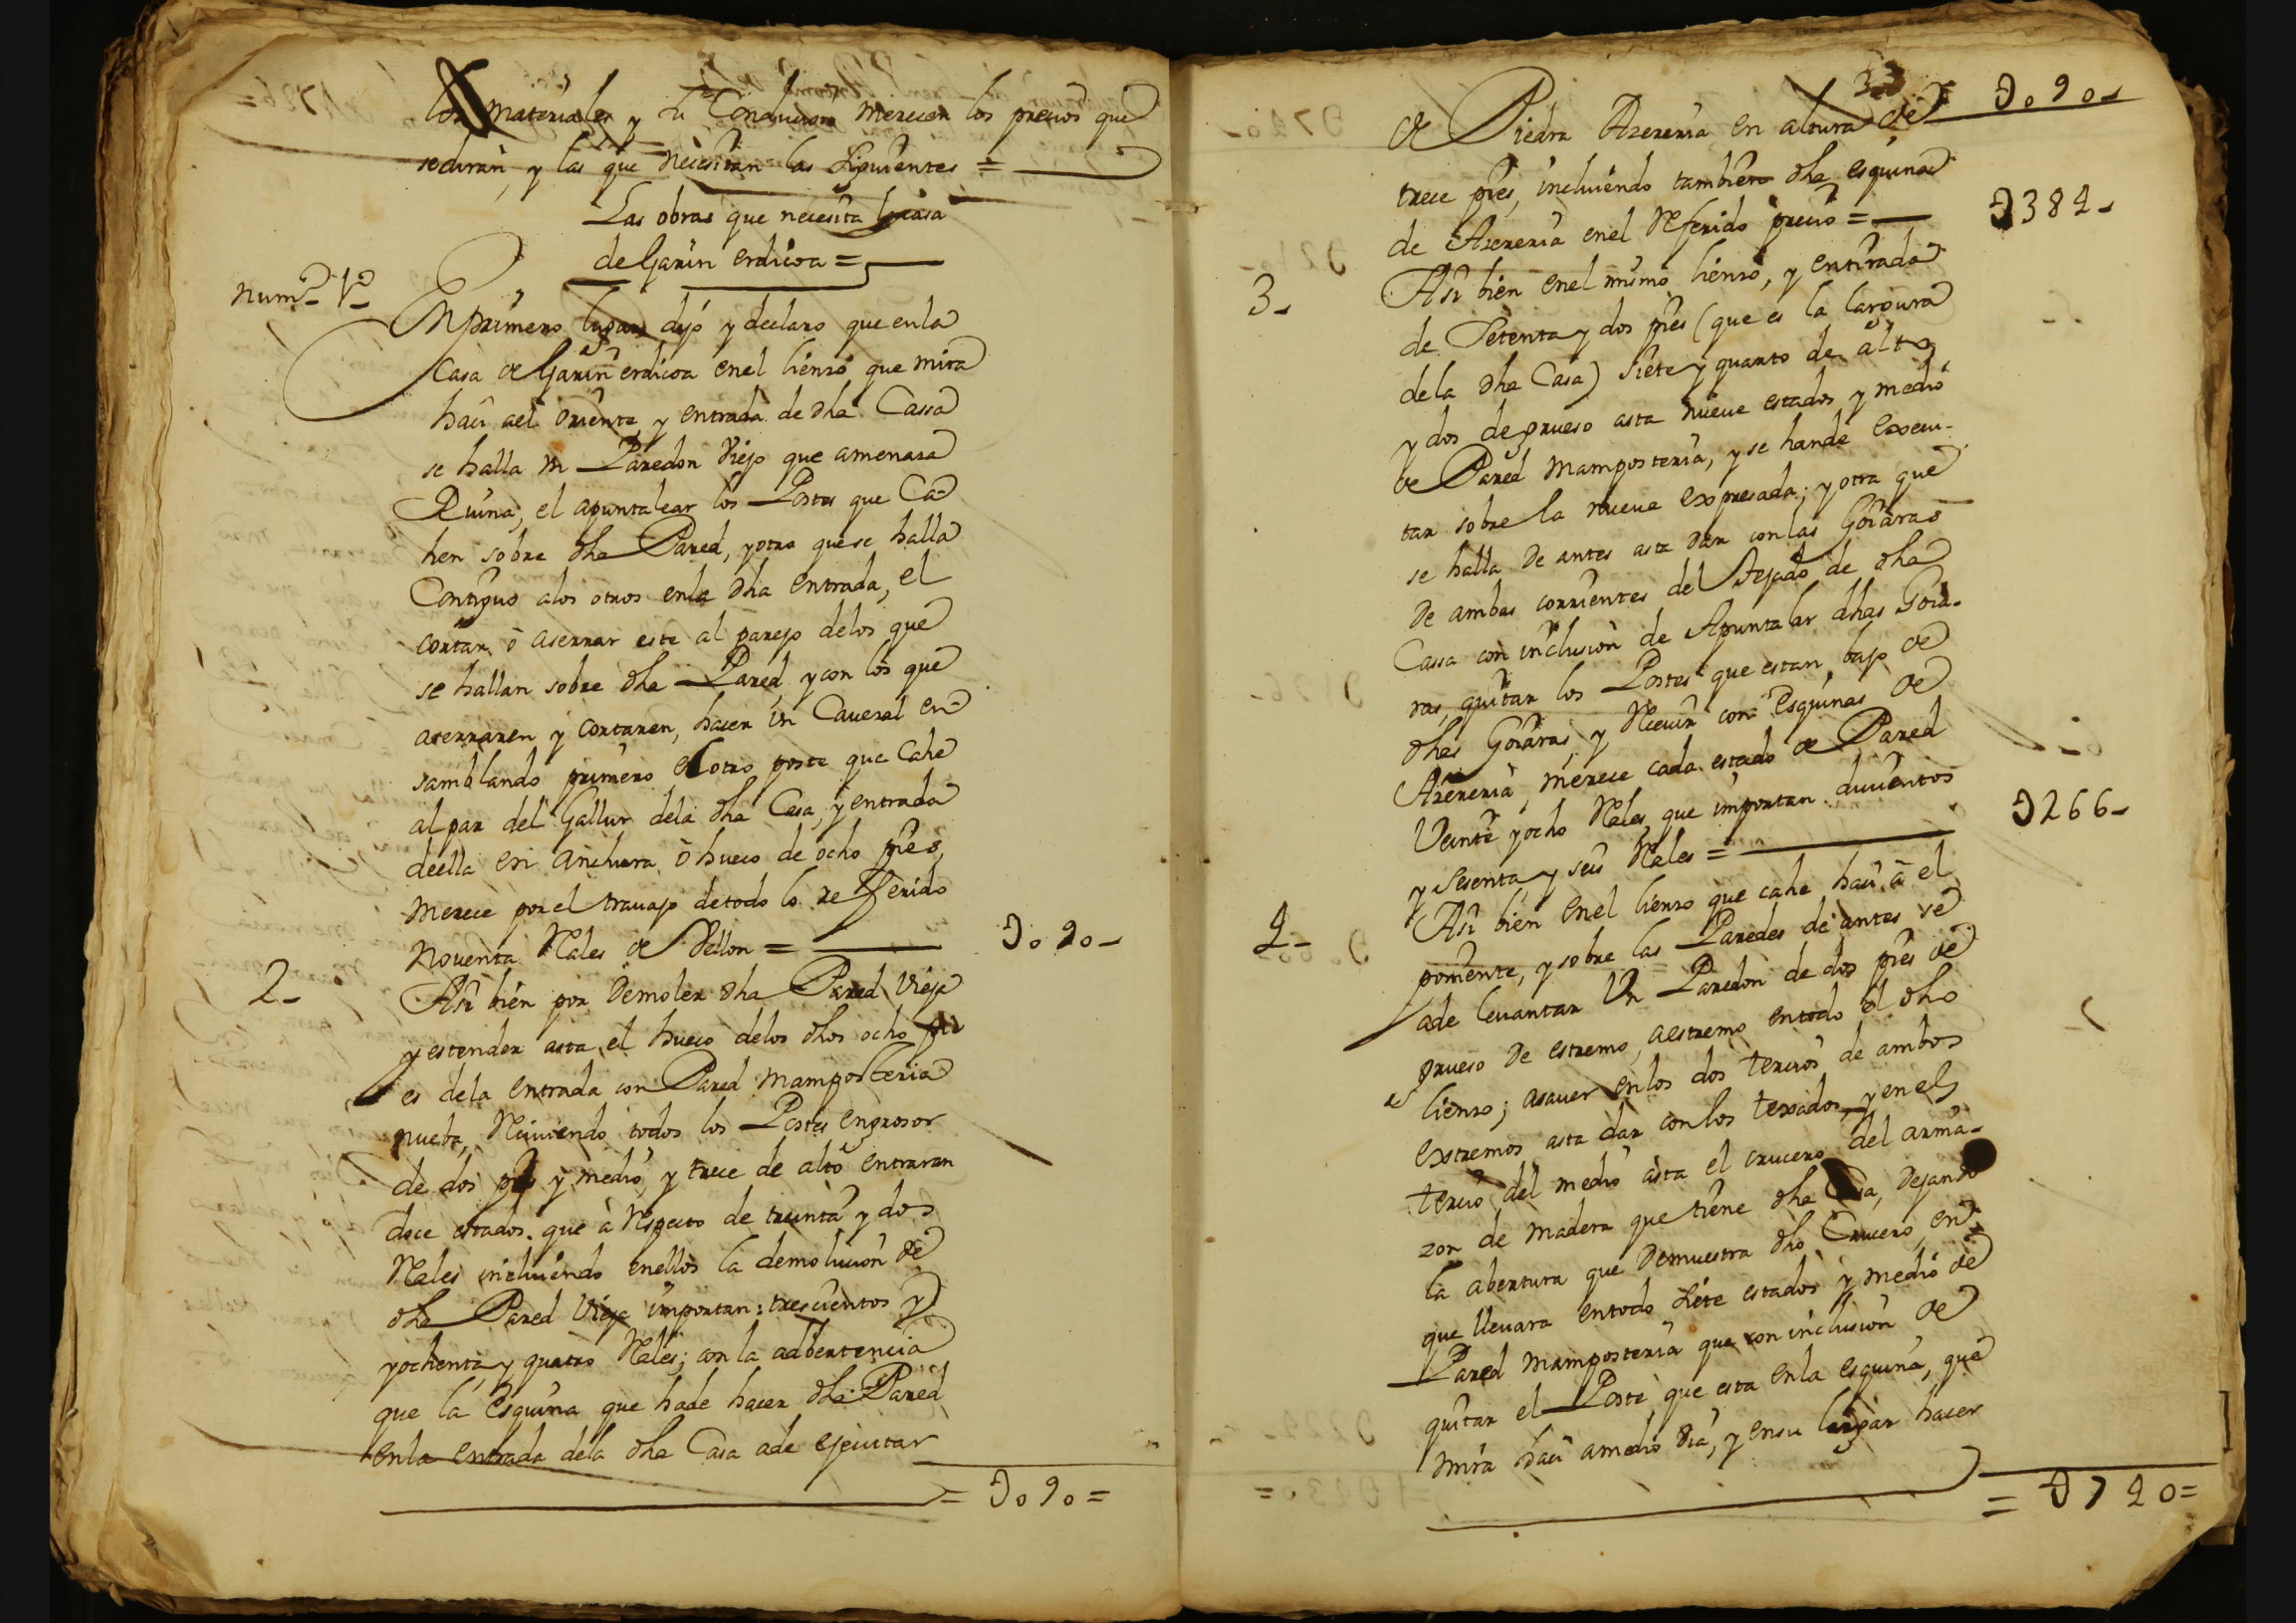 los materiales y su Conducion merecen los precios que
se diran, y las que necesitan las siguientes =
Las obras que necesita la casa
de Garin erdicoa =
Num.o 1.o
En primero lugar dijo y declaro que en la
Casa de Garin erdicoa en el lienso que mira
haci a el oriente, y entrada de dha Cassa
se halla un Paredon Viejo que amenasa
Ruina, el apuntalear los Postes que Ca-
hen sobre dha Pared, y otro que se halla
Contiguo a los otros en la dha entrada, el
cortar ò aserrar este al parejo de los que
se hallan sobre dha Pared, y con los que
aserraren y cortaren, hacer un Caveral en-
samblando primero el otro poste que Cahe
al par del Gallur de la dha Casa, y entrada
de ella en anchura ò hueco de ocho pies,
merece por el travajo de todo lo referido
noventa Rales de Vellon = D090-
2-
Assi bien por demoler dha Pared Vieja
y estender asta el hueco de los dhos ocho pi
es de la entrada con Pared mamposteria
nueba, Reciviendo todos los Postes en grosor
de dos pies y medio, y trece de alto entraran
doce estados. que à respecto de treinta y dos
Rales incluiendo en ellos la demolicion de
dha Pared Vieja importan: trescientos y
yochenta, y quatro Rales; con la adbertencia
que la esquina que ha de hacer dha Pared
en la entrada de la dha Casa a de ejecutar
= D090=
33
D090-
de Piedra Areneria en altura de
trece pies, incluiendo tambien dha esquina
de Areneria en el Referido precio = D384-
3-
Assi bien en el mismo lienso, y entirada
de Setenta y dos pies (que es la largura
de la dha Casa) siete y quarto de alto,
y dos de grueso asta nueve estados y medio
de Pared mamposteria, y se han de execu-
tar sobre la nueva expresada; y otra que
se halla de antes asta dar con las Goiaras
de ambas corrientes del Tejado de dha
Cassa con inclusion de Apuntalar dhas Goia-
ras, quitar los Postes que estan bajo de
dhas Goiaras, y Recivir con esquinas de
Areneria, merece cada estado de Pared
Veinte y ocho Rales, que importan ducientos
y Sesenta, y seis Rales = D266-
4-
Assi bien en el lienso que cahe haci à el
poniente, y sobre las Paredes de antes se
a de levantar Un Paredon de dos pies de
grueso de estremo, a estremo en todo el dho
lienso; asaver en los dos tercios de ambos
extremos asta dar con los texados, y en el
tercio del medio asta el crucero del arma-
zon de madera que tiene dha Casa, dejando
la abertura que demuestra dho Crucero, en
que llevara en todo siete estados y medio de
Pared mamposteria que con inclusion de
quitar el Poste que esta en la esquina, que
mira haci a medio dia, y en su lugar hacer
= D740=